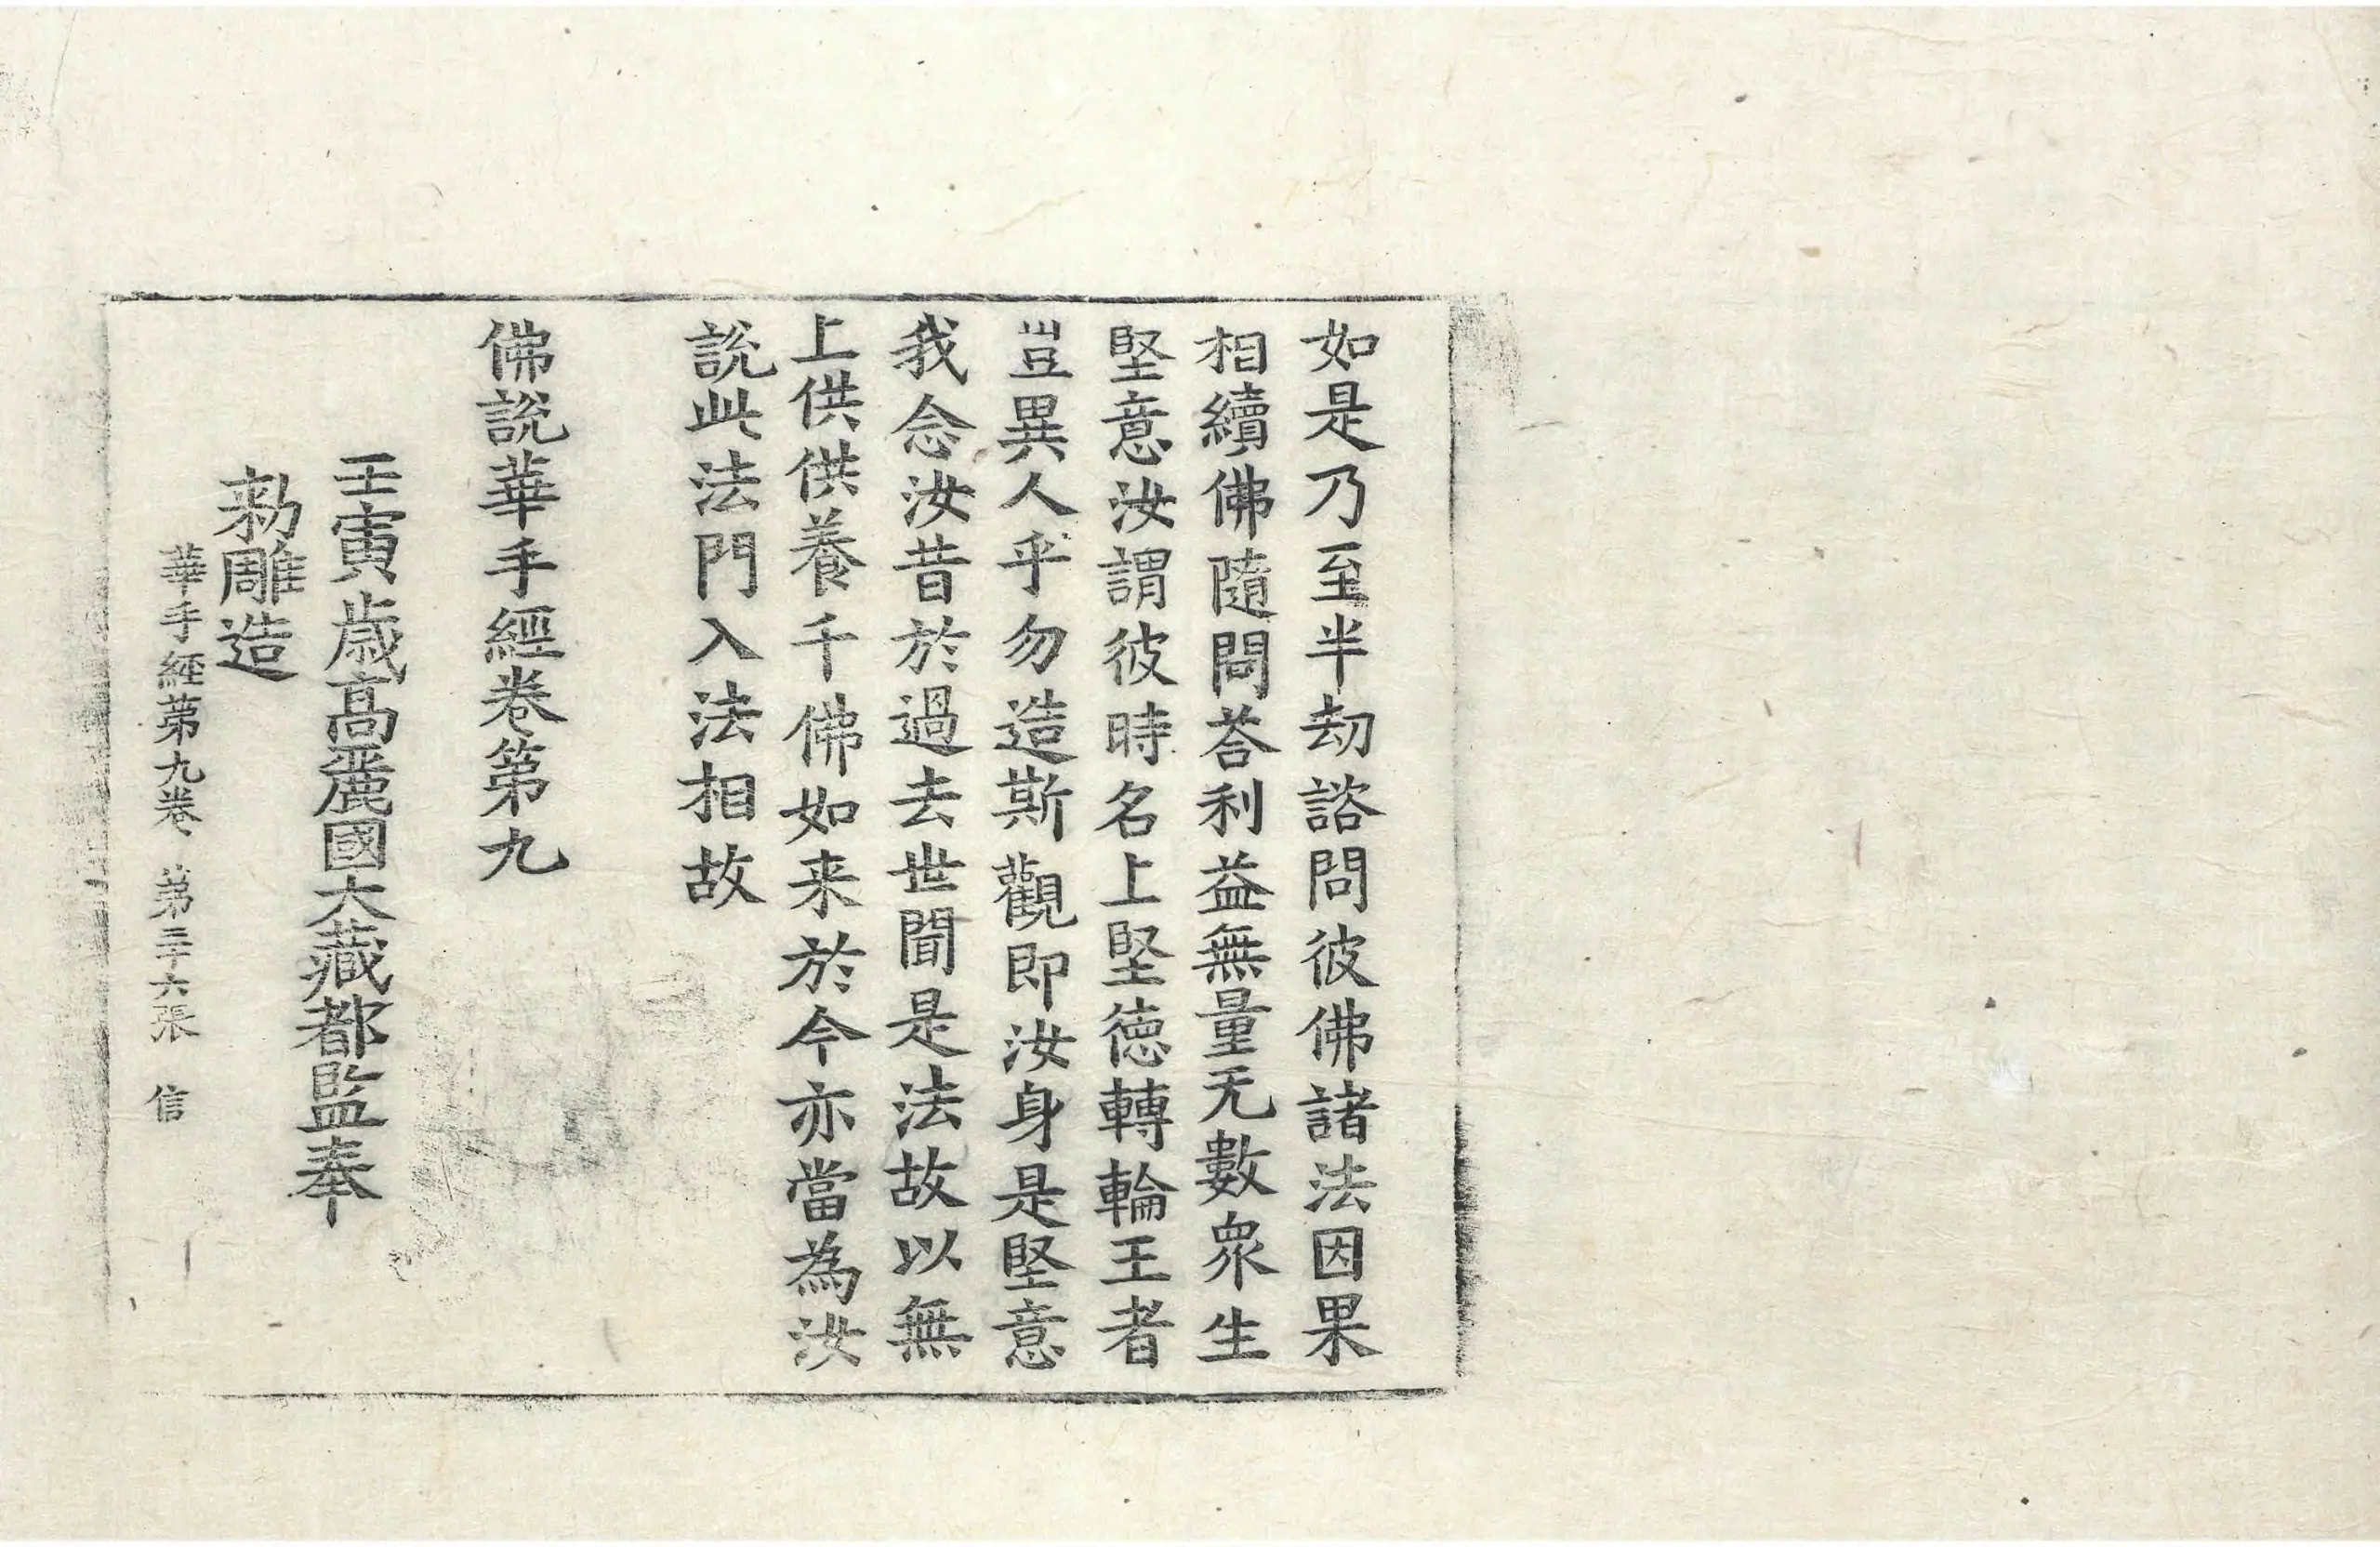 如是乃至半劫諮問彼佛諸法因果
相續佛隨問荅利益無量无數衆生
堅意汝謂彼時名上堅德轉輪王者
豈異人乎勿造斯觀即汝身是堅意
我念汝昔於過去世聞是法故以無
上供供養千佛如来於今亦當為汝
說此法門入法相故
佛說華手經卷第九
壬寅歲高麗國大藏都監奉
勑雕造
華手經第九卷 第三十六張 信